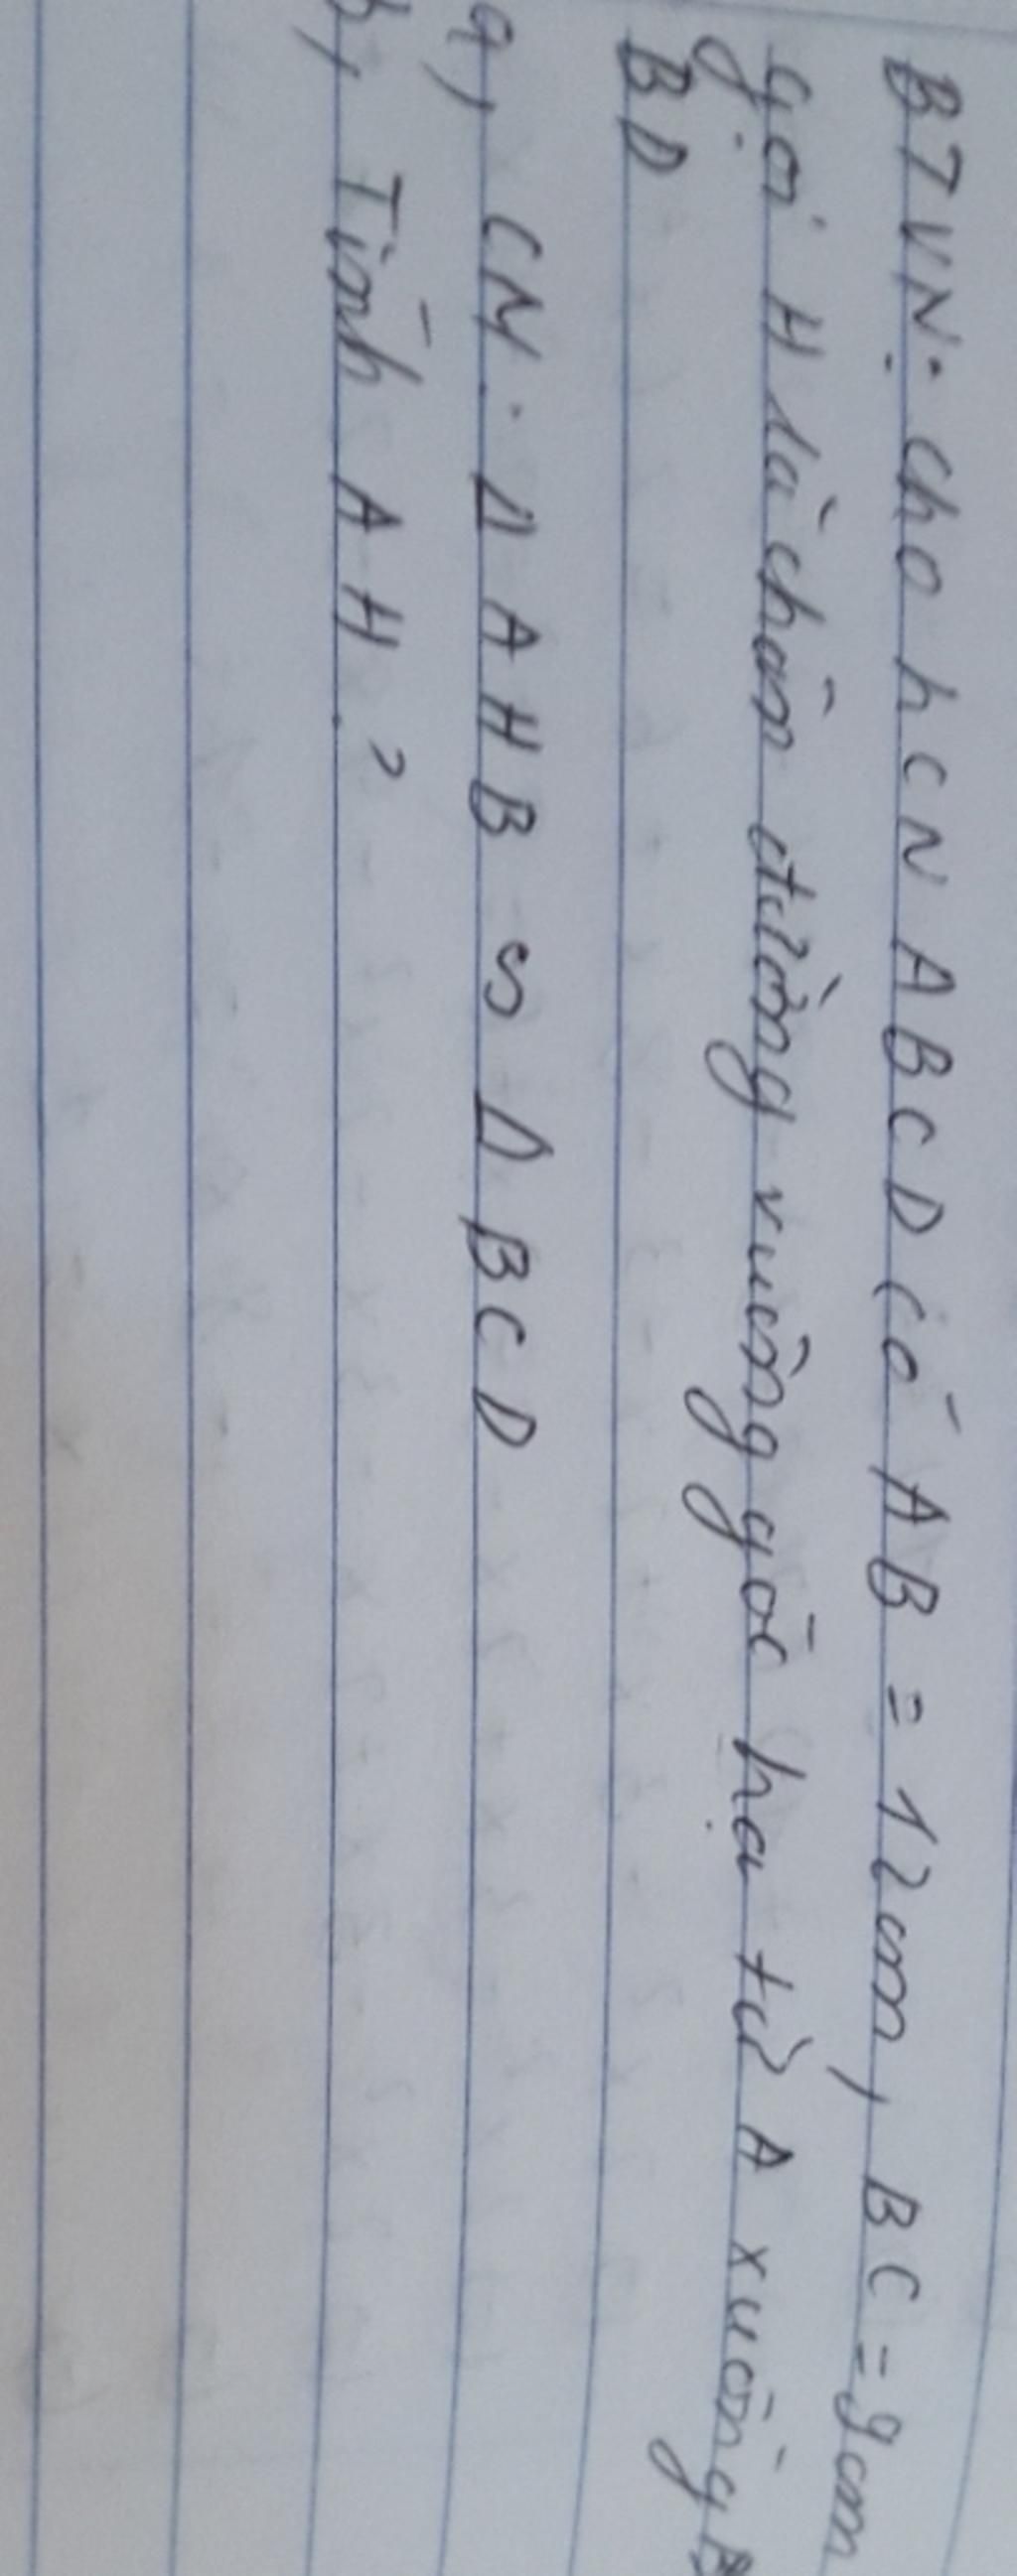 BTVN: cho hcN ABCD có AB = 12cm, BC = 9cm
gọi H là chân đường vuông góc hạ từ A xuống B
BD
a, CM. Δ AHB ∽ Δ BCD
b, Tính AH ?